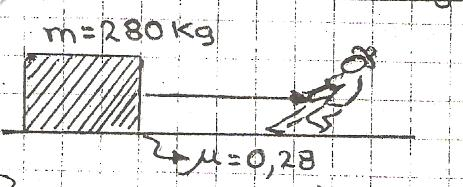 m=280Kg
μ=0,28